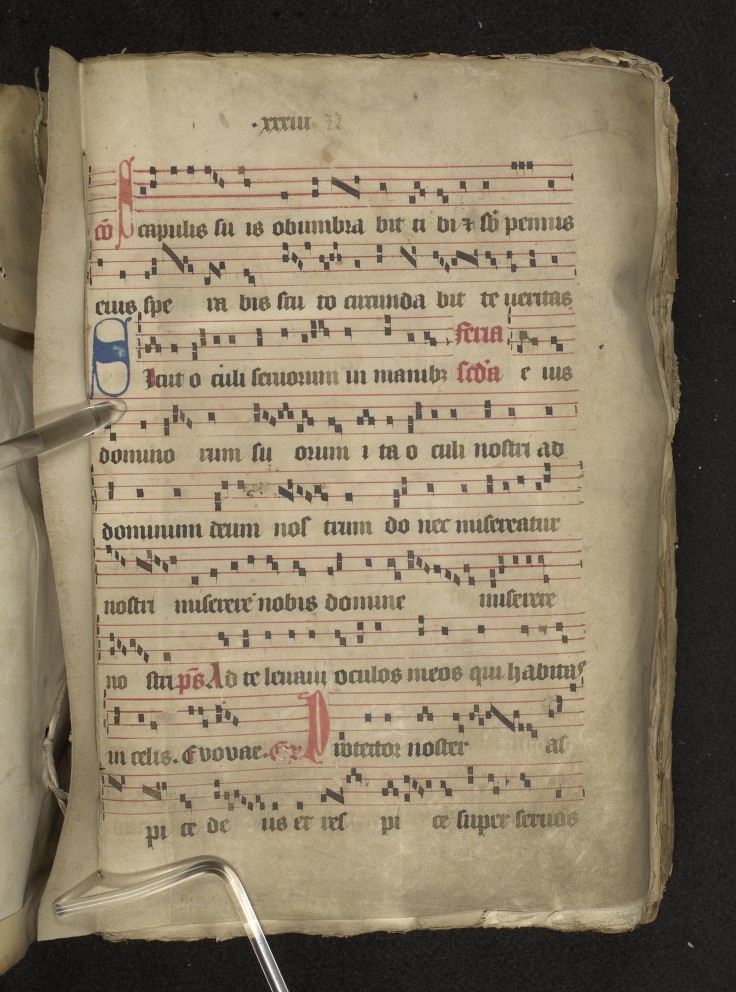 ·xxxiii· 
cō Scapulis su is obumbra bit ti bi ⁊ sb̄ pennis
eius spe ra bis scu to circunda bit te ueritas
SIcut o culi seruorum in manibꝫ feria scd̄a e ius
domino rum su orum i ta o culi nostri ad
dominum deum nos trum do nec misereatur
nostri miserere nobis domine miserere
no stri ps̄ Ad te leuaui oculos meos qui habitas
in celis. Evovae. Gr̄ Protector noster as
pi ce de us et res pi ce super seruos